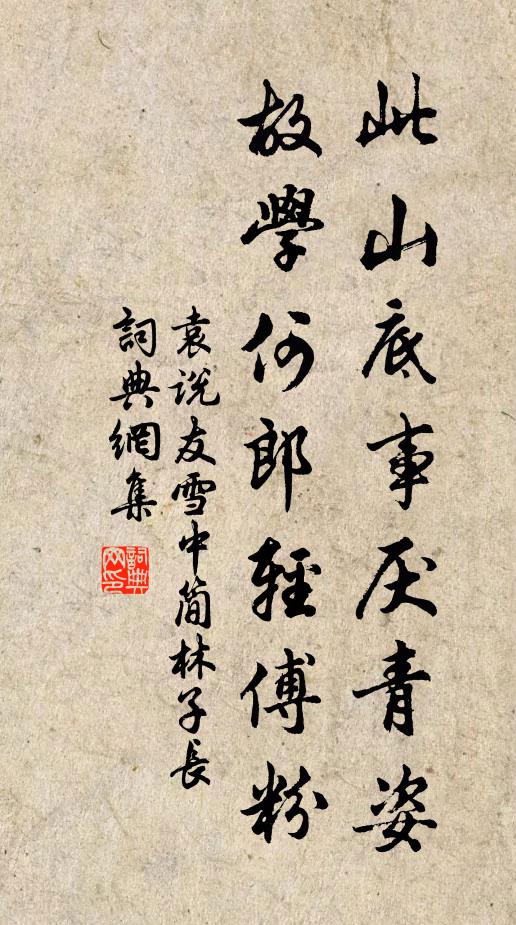 此山底事厌青姿
故學何郎輕傅粉
袁説友雪中简林子長
詞典網集
詞典网印